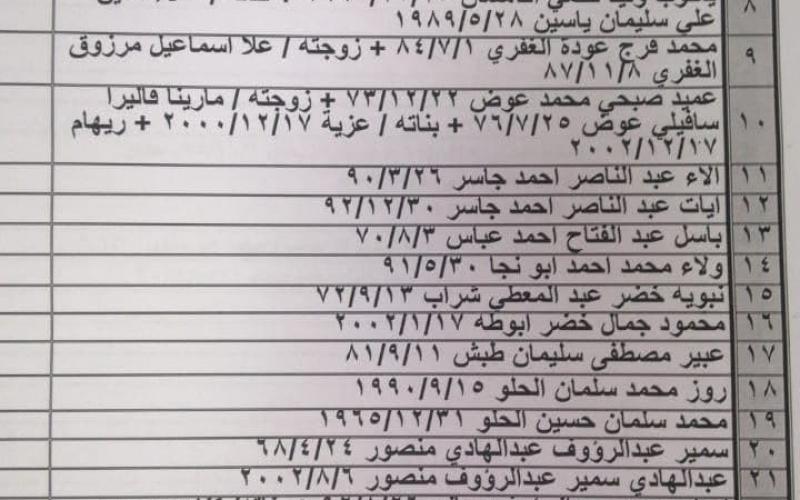 ٨
علي سليمان ياسين ١٩٨٩/٥/٢٨
٩ محمد فرج عودة الغفري ٨٤/٧/١ + زوجته / علا اسماعيل مرزوق
الغفري ٨٧/١١/٨
عميد صبحي محمد عوض ٧٣/١٢/٢٢ + زوجته / مارينا فاليرا
١٠ سافيلي عوض ٧٦/٧/٢٥ + بناته / عزية ٢٠٠٠/١٢/١٧ + ريهام
٢٠٠٢/١٢/١٧
١١ الاء عبد الناصر احمد جاسر ٩٠/٣/٢٦
١٢ ايات عبد الناصر احمد جاسر ٩٢/١٢/٣٠
١٣ باسل عبد الفتاح احمد عباس ٧٠/٨/٣
١٤ ولاء محمد احمد ابو نجا ٩١/٥/٣٠
١٥ نبويه خضر عبد المعطي شراب ٧٢/٩/١٣
١٦ محمود جمال خضر ابوطه ٢٠٠٢/١/١٧
١٧ عبير مصطفى سليمان طبش ٨١/٩/١١
١٨ روز محمد سلمان الحلو ١٩٩٠/٩/١٥
١٩ محمد سلمان حسين الحلو ١٩٦٥/١٢/٣١
٢٠ سمير عبدالرؤوف عبدالهادي منصور ٦٨/٤/٢٤
٢١ عبدالهادي سمير عبدالرؤوف منصور ٢٠٠٢/٨/٦